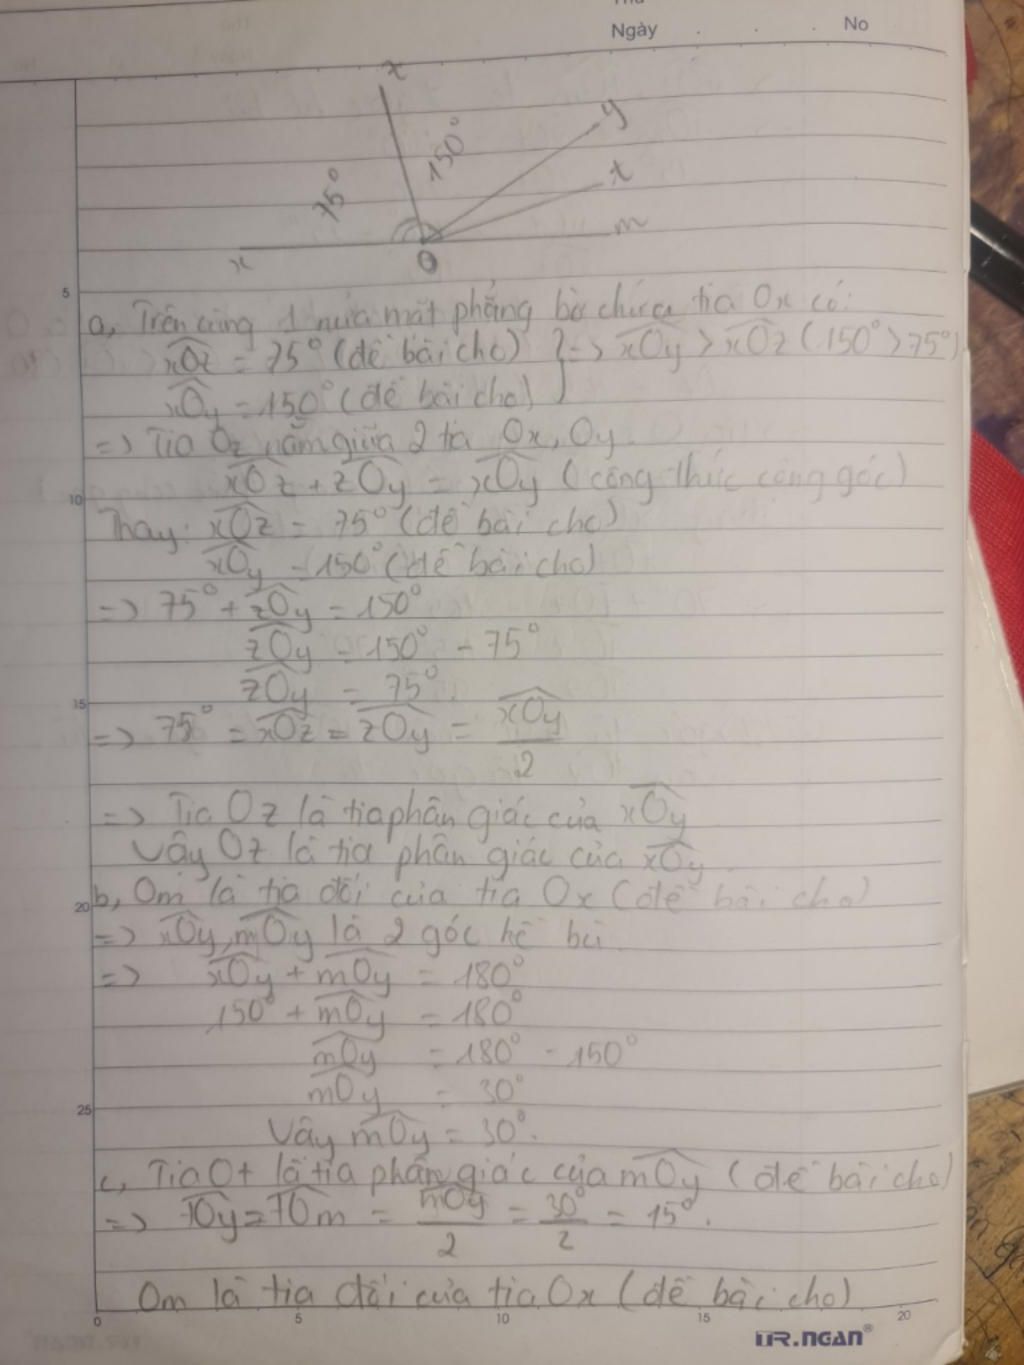 Thứ
Ngày . . . No
z
y
150°
t
75°
m
x
O
5
a, Trên cùng 1 nửa mặt phẳng bờ chứa tia Ox có:
xOz = 75° (đề bài cho) } => xOy > xOz (150° > 75°)
xOy = 150° (đề bài cho)
=> Tia Oz nằm giữa 2 tia Ox, Oy.
xOz + zOy = xOy (công thức cộng góc)
10
Thay: xOz = 75° (đề bài cho)
xOy = 150° (đề bài cho)
=> 75° + zOy = 150°
zOy = 150° - 75°
zOy = 75°.
15
=> 75° = xOz = zOy = xOy
2
=> Tia Oz là tia phân giác của xOy
Vậy Oz là tia phân giác của xOy.
20
b, Om là tia đối của tia Ox (đề bài cho)
=> xOy, mOy là 2 góc kề bù.
=> xOy + mOy = 180°
150° + mOy = 180°
mOy = 180° - 150°
mOy = 30°
25
Vậy mOy = 30°.
c, Tia Ot là tia phân giác của mOy (đề bài cho)
=> tOy = tOm = mOy/2 = 30°/2 = 15°.
Om là tia đối của tia Ox (đề bài cho)
0 5 10 15 20
TR.NGAN®